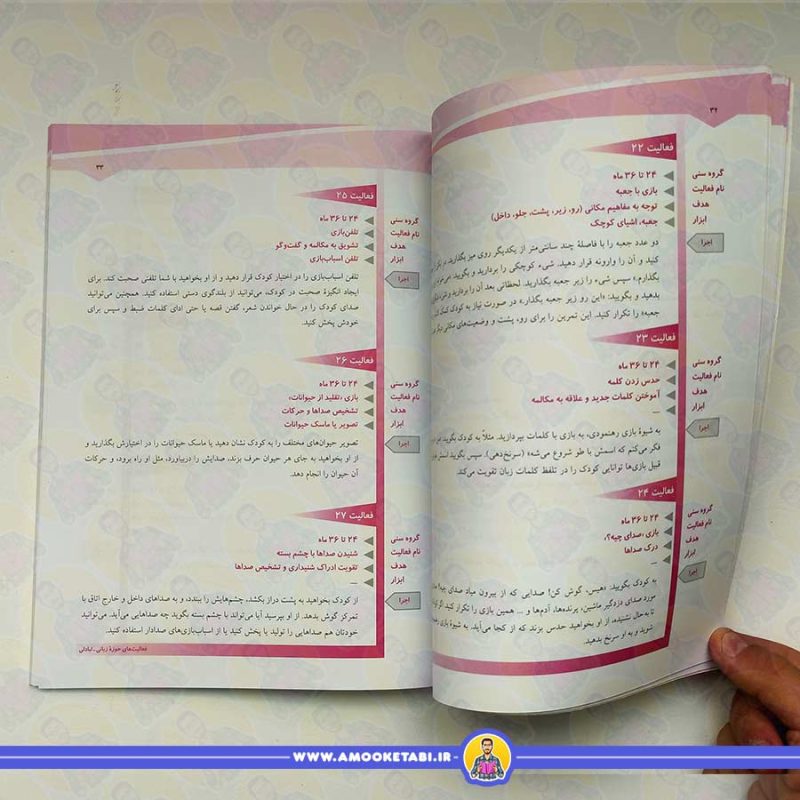 ۳۲
فعالیت ۲۲
گروه سنی ۲۴ تا ۳۶ ماه
نام فعالیت بازی با جعبه
هدف توجه به مفاهیم مکانی (رو، زیر، پشت، جلو، داخل)
ابزار جعبه، اشیای کوچک
اجرا
دو عدد جعبه را با فاصلهٔ چند سانتی‌متر از یکدیگر روی میز بگذارید.
کنید و آن را وارونه قرار دهید. شیء کوچکی را بردارید و بگویید:
بگذارم.» سپس شیء را زیر جعبه بگذارید. لحظاتی بعد آن را بردارید و
بدهید و بگویید: «این رو زیر جعبه بگذار.» در صورت نیاز به کودک کمک
جعبه» را تکرار کنید. این تمرین را برای رو، پشت و وضعیت‌های مکانی دیگر
فعالیت ۲۳
گروه سنی ۲۴ تا ۳۶ ماه
نام فعالیت حدس زدن کلمه
هدف آموختن کلمات جدید و علاقه به مکالمه
ابزار —
اجرا
به شیوهٔ بازی رهنمودی، به بازی با کلمات بپردازید. مثلاً به کودک بگویید:
فکر می‌کنم که اسمش با طو شروع می‌شه» (سرنخ‌دهی). سپس بگویید
قبیل بازی‌ها توانایی کودک را در تلفظ کلمات زبان تقویت می‌کند.
فعالیت ۲۴
گروه سنی ۲۴ تا ۳۶ ماه
نام فعالیت بازی «صدای چیه؟»
هدف درک صداها
ابزار —
اجرا
به کودک بگویید: «هیس، گوش کن! صدایی که از بیرون میاد صدای چیه؟
مورد صدای دزدگیر ماشین، پرنده‌ها، آدم‌ها و ... همین بازی را تکرار کنید.
تا به‌حال نشنیده، از او بخواهید حدس بزند که از کجا می‌آید. به شیوهٔ بازی
شوید و به او سرنخ بدهید.
۳۳
فعالیت ۲۵
گروه سنی ۲۴ تا ۳۶ ماه
نام فعالیت تلفن‌بازی
هدف تشویق به مکالمه و گفت‌وگو
ابزار تلفن اسباب‌بازی
اجرا
تلفن اسباب‌بازی را در اختیار کودک قرار دهید و از او بخواهید با شما تلفنی صحبت کند. برای
ایجاد انگیزهٔ صحبت در کودک، می‌توانید از بلندگوی دستی استفاده کنید. همچنین می‌توانید
صدای کودک را در حال خواندن شعر، گفتن قصه یا حتی ادای کلمات ضبط و سپس برای
خودش پخش کنید.
فعالیت ۲۶
گروه سنی ۲۴ تا ۳۶ ماه
نام فعالیت بازی «تقلید از حیوانات»
هدف تشخیص صداها و حرکات
ابزار تصویر یا ماسک حیوانات
اجرا
تصویر حیوان‌های مختلف را به کودک نشان دهید یا ماسک حیوانات را در اختیارش بگذارید و
از او بخواهید به جای هر حیوان حرف بزند، صدایش را دربیاورد، مثل او راه برود، و حرکات
آن حیوان را انجام دهد.
فعالیت ۲۷
گروه سنی ۲۴ تا ۳۶ ماه
نام فعالیت شنیدن صداها با چشم بسته
هدف تقویت ادراک شنیداری و تشخیص صداها
ابزار —
اجرا
از کودک بخواهید به پشت دراز بکشد، چشم‌هایش را ببندد، و به صداهای داخل و خارج اتاق با
تمرکز گوش بدهد. از او بپرسید آیا می‌تواند با چشم بسته بگوید چه صداهایی می‌آید. می‌توانید
خودتان هم صداهایی را تولید یا پخش کنید یا از اسباب‌بازی‌های صدادار استفاده کنید.
فعالیت‌های حوزهٔ زبانی ـ تبادلی
WWW.AMOOKETABI.IR